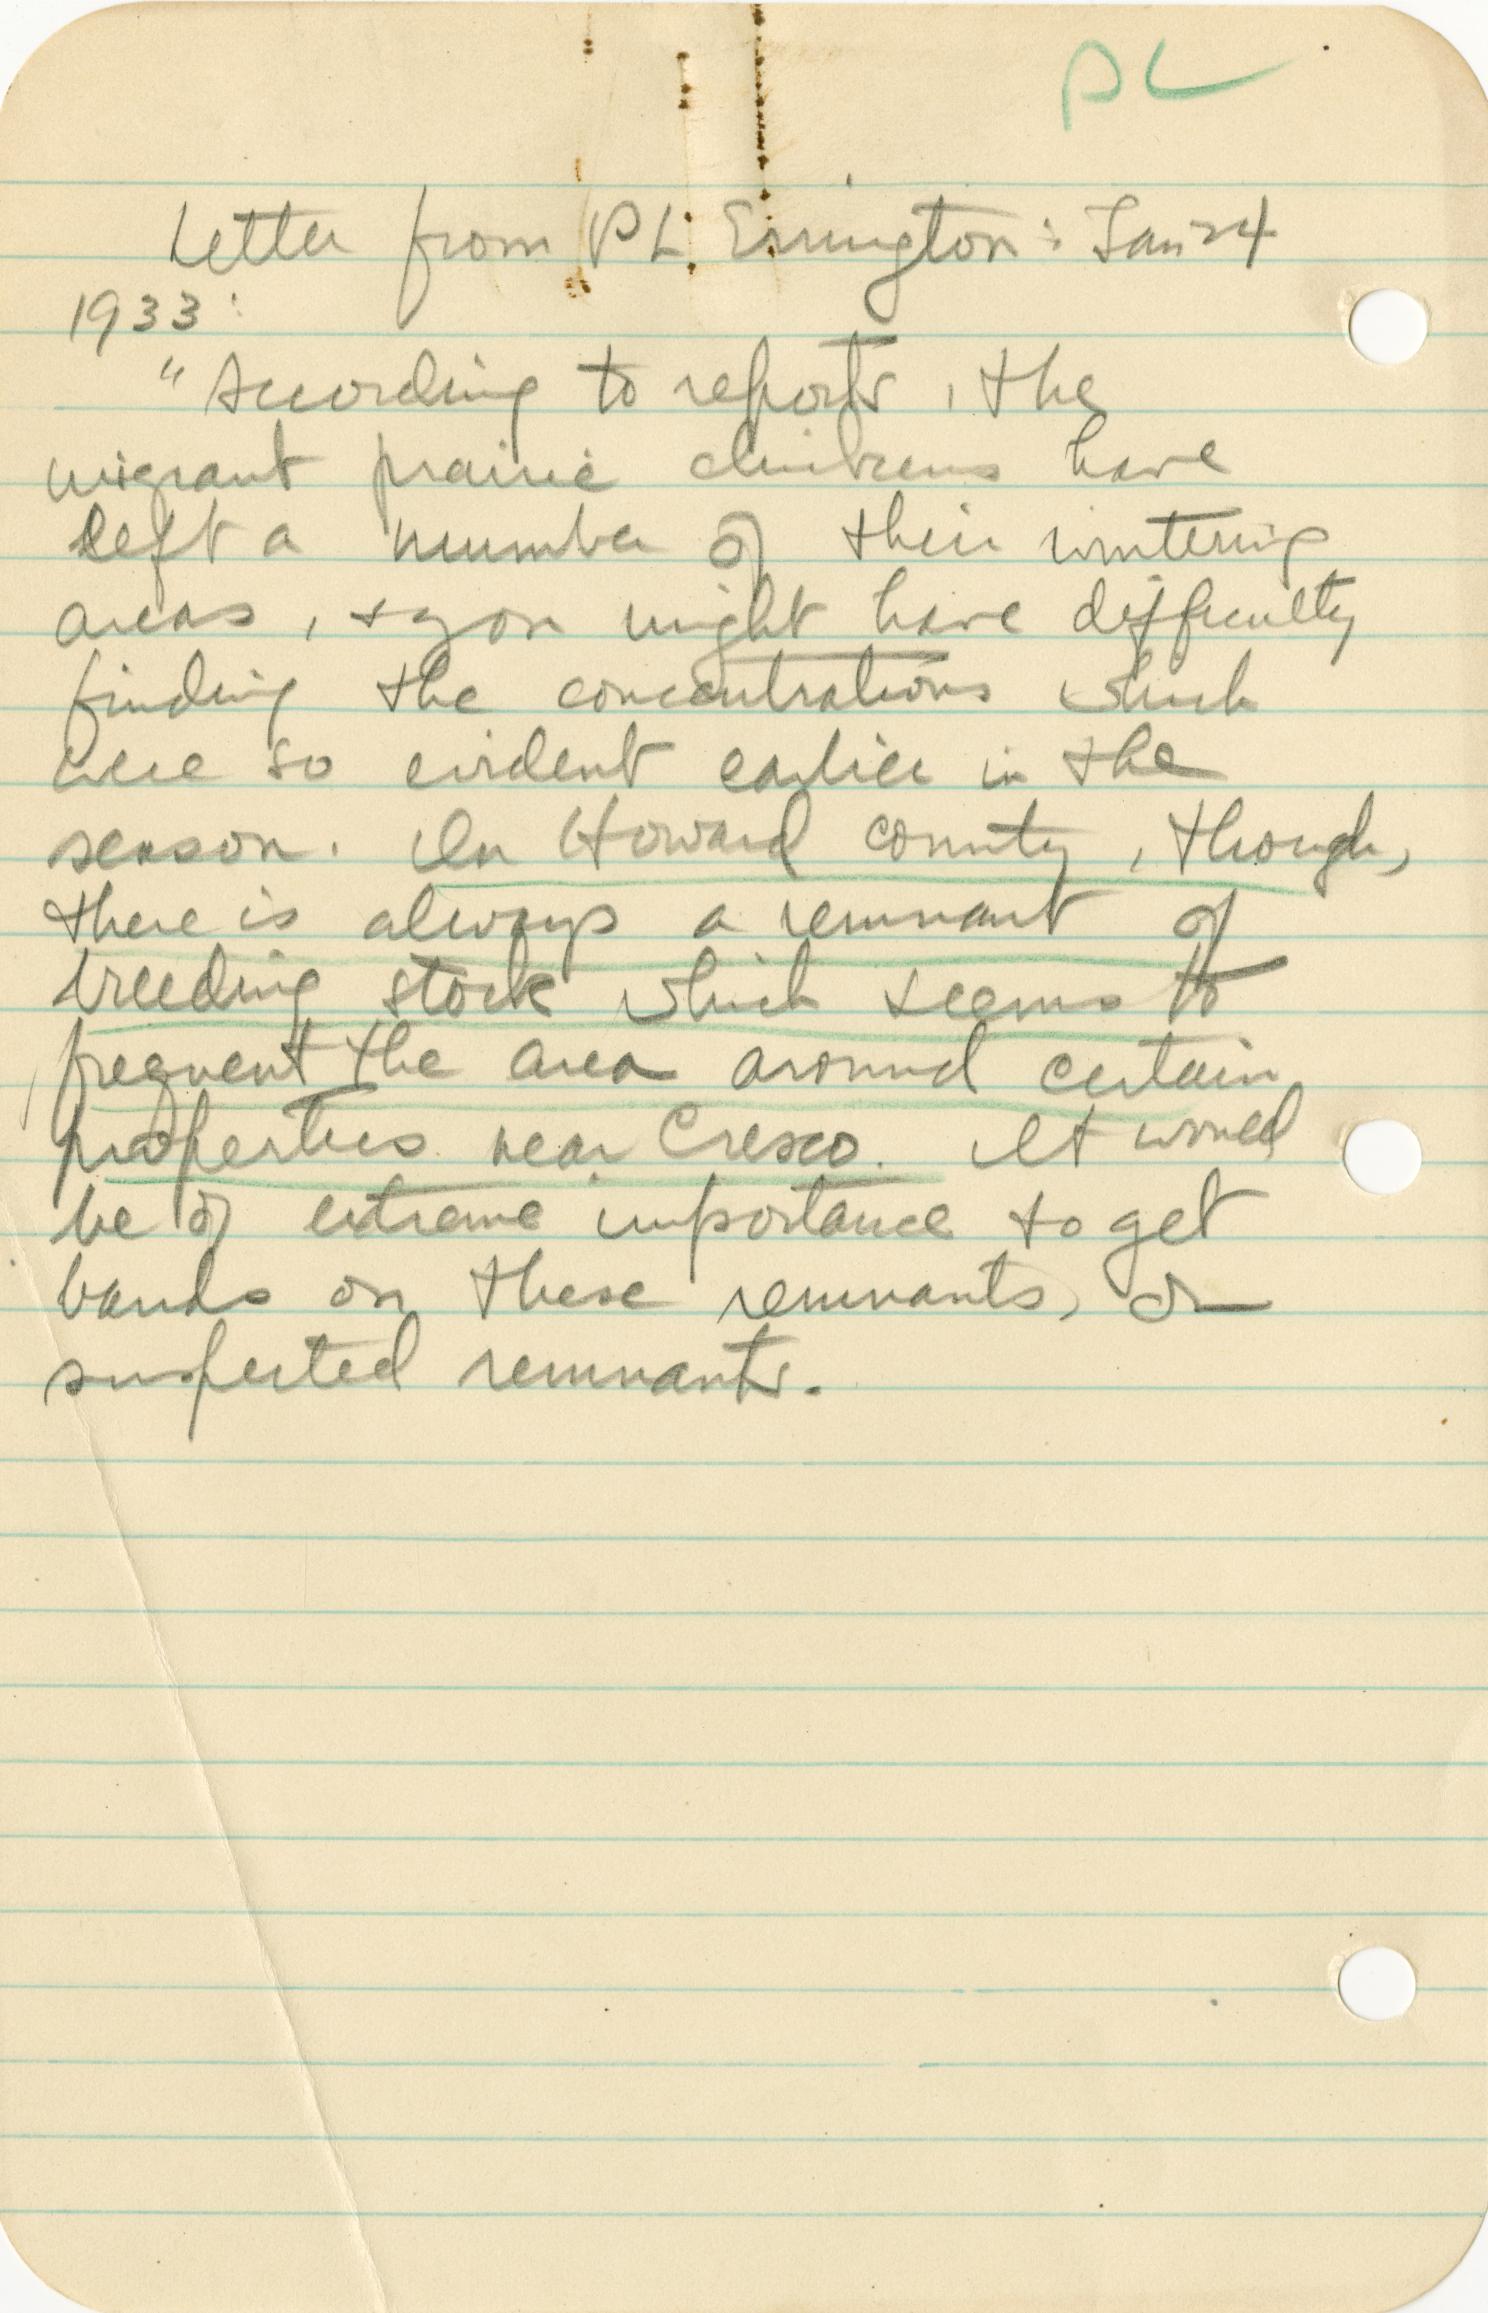 PL
Letter from PL Errington: Jan 24
1933:
"According to reports, the
migrant prairie chickens have
left a number of their wintering
areas, + you might have difficulty
finding the concentrations which
were so evident earlier in the
season. In Howard county, though,
there is always a remnant of
breeding stock which seems to
frequent the area around certain
properties near Cresco. It would
be of extreme importance to get
bands on these remnants, or
suspected remnants.